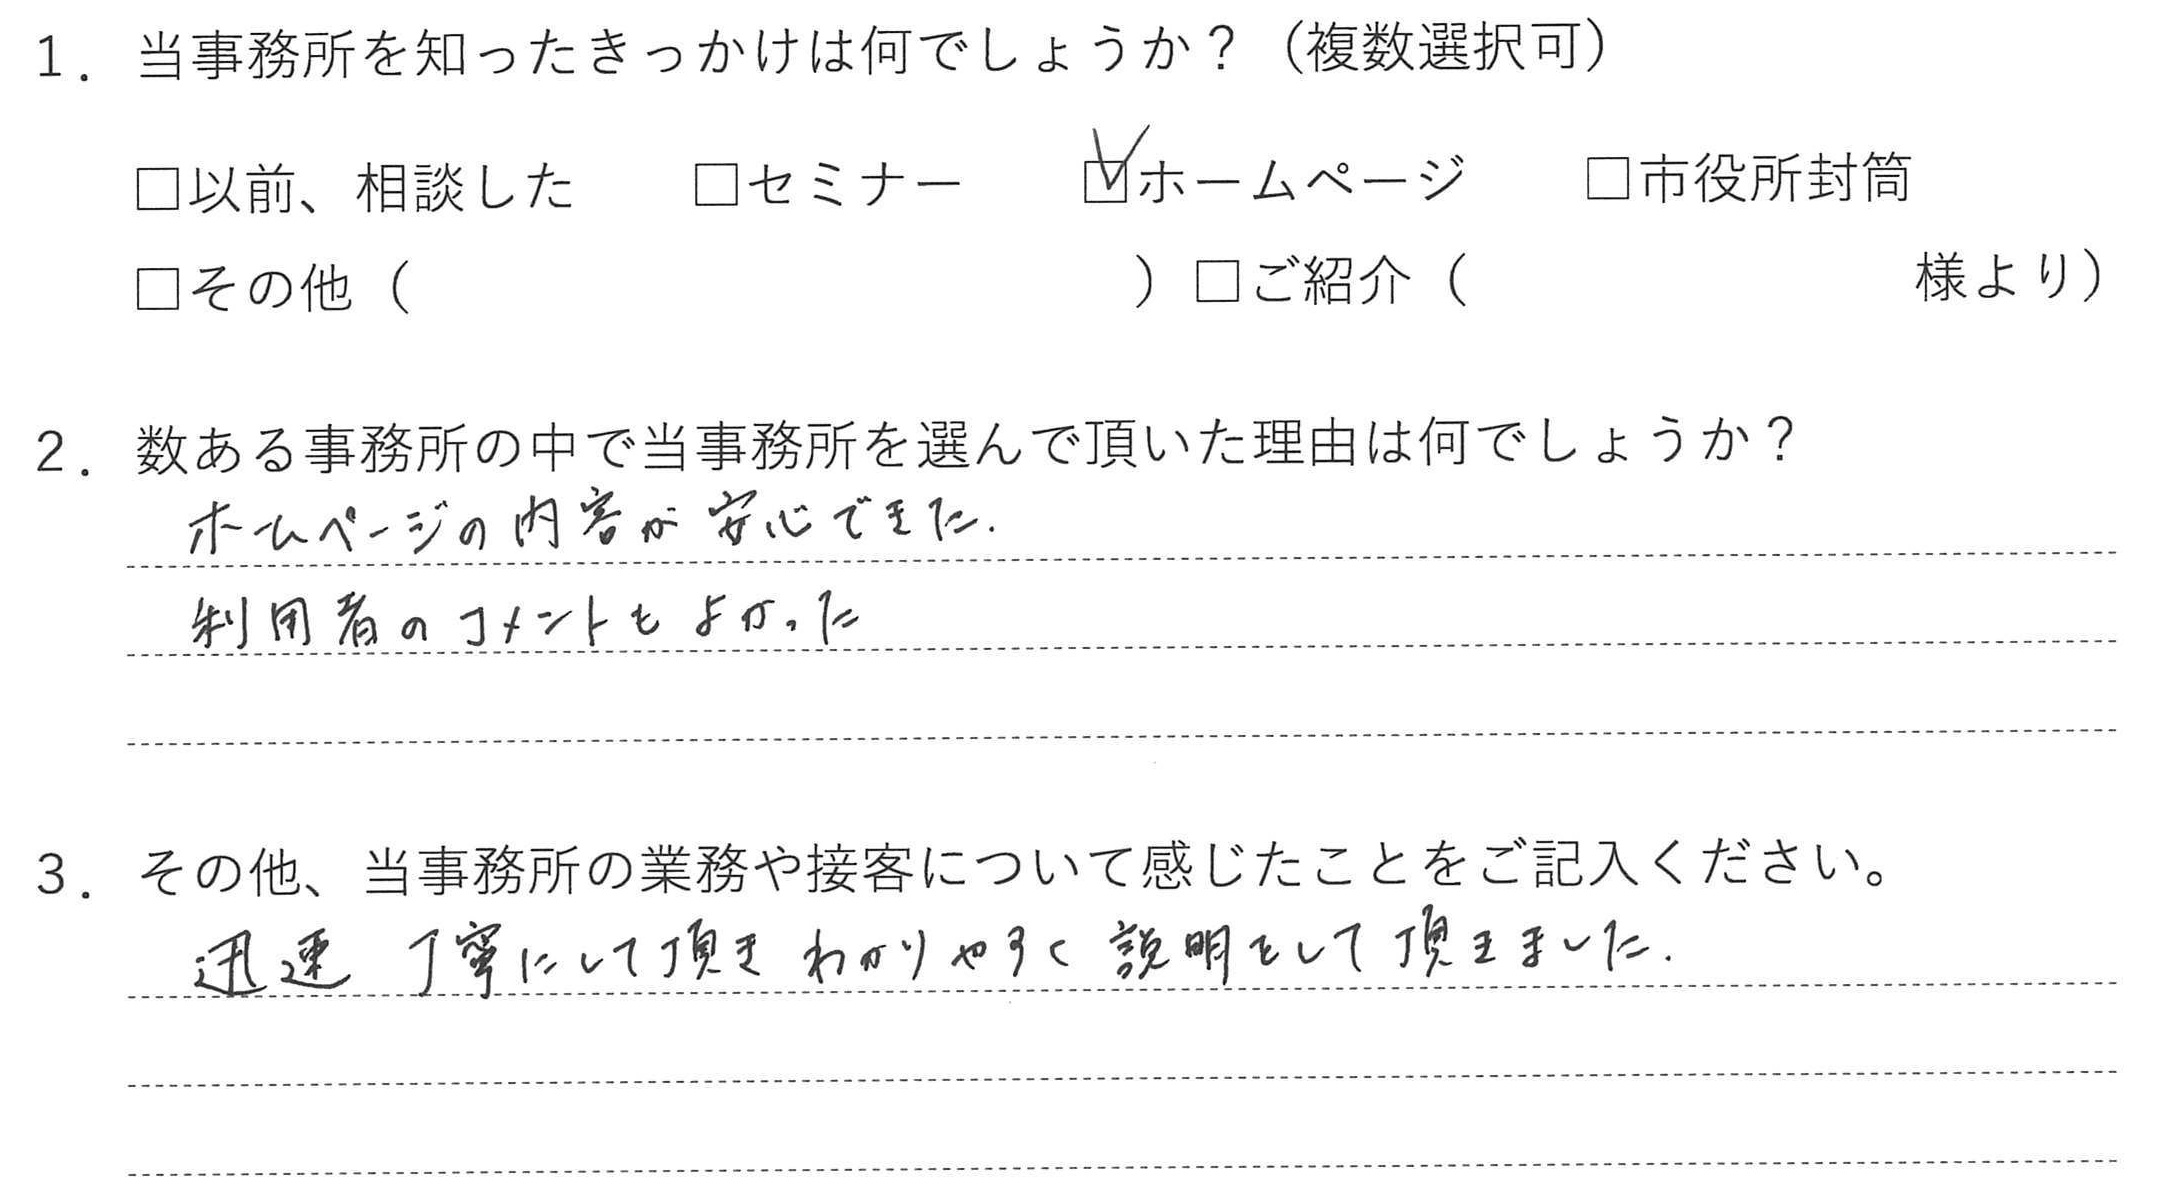 1. 当事務所を知ったきっかけは何でしょうか？（複数選択可）
□以前、相談した　□セミナー　☑ホームページ　□市役所封筒
□その他（　　　）□ご紹介（　　　様より）
2. 数ある事務所の中で当事務所を選んで頂いた理由は何でしょうか？
ホームページの内容が安心できた.
利用者のコメントもよかった
3. その他、当事務所の業務や接客について感じたことをご記入ください。
迅速 丁寧にして頂き わかりやすく 説明をして頂きました.